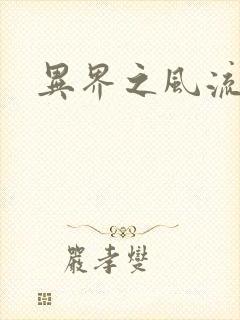 異界之風流
嚴孝燮